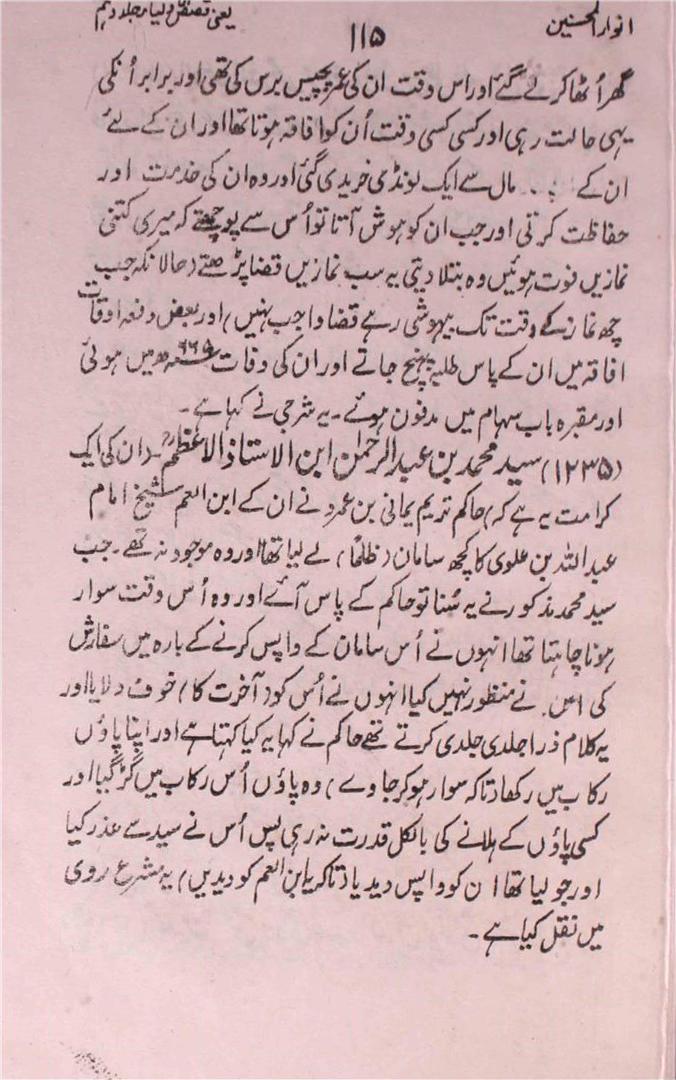 انوار المحسنین
۱۱۵
یعنی قصص اولیار جلد دہم
گھر اُٹھا کر لے گئے اور اس وقت ان کی عمر پچیس برس کی تھی اور برابر اُنکی
یہی حالت رہی اور کسی کسی وقت اُن کو افاقہ ہوتا تھا اور ان کے لئے
ان کے مال سے ایک لونڈی خریدی گئی اور وہ ان کی خدمت اور
حفاظت کرتی اور جب ان کو ہوش آتا تو اُس سے پوچھتے کہ میری کتنی
نمازیں فوت ہوئیں وہ بتلا دیتی یہ سب نمازیں قضا پڑھتے (حالانکہ جب
چھ نماز کے وقت تک بیہوشی رہے قضا واجب نہیں) اور بعض دفعہ اوقات
افاقہ میں ان کے پاس طلبہ پہنچ جاتے اور ان کی وفات ۶۶۵ھ میں ہوئی
اور مقبرہ باب سہام میں مدفون ہوئے۔ یہ شرجی نے کہا ہے۔
(۱۲۳۵) سید محمد بن عبد الرحمٰن ابن الاستاذ الاعظمؒ۔ ان کی ایک
کرامت یہ ہے کہ) حاکم تریم یمانی بن عمرو نے ان کے ابن العم شیخ امام
عبد اللہ بن علوی کا کچھ سامان (ظلماً) لے لیا تھا اور وہ موجود نہ تھے۔ جب
سید محمد مذکور نے یہ سُنا تو حاکم کے پاس آئے اور وہ اُس وقت سوار
ہونا چاہتا تھا انہوں نے اُس سامان کے واپس کرنے کے بارہ میں سفارش
کی اس نے منظور نہیں کیا انہوں نے اُس کو (آخرت کا) خوف دلایا اور
یہ کلام ذرا جلدی جلدی کرتے تھے حاکم نے کہا یہ کیا کہتا ہے اور اپنا پاؤں
رکاب میں رکھا (تاکہ سوار ہو کر جاوے) وہ پاؤں اُس رکاب میں گڑ گیا اور
کسی پاؤں کے ہلانے کی بالکل قدرت نہ رہی پس اُس نے سید سے عذر کیا
اور جو لیا تھا ان کو واپس دیدیا (تاکہ یہ ابن العم کو دیدیں) یہ مشرع روی
میں نقل کیا ہے۔